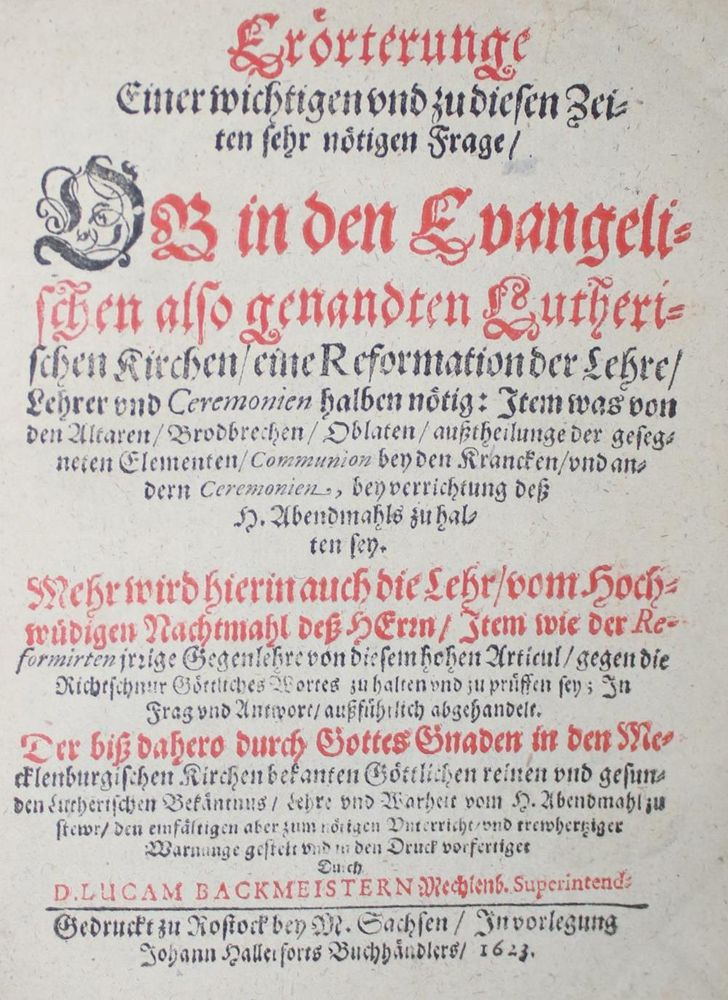 Erörterunge
Einer wichtigen vnd zu diesen Zei-
ten sehr nötigen Frage/
OB in den Evangeli-
schen also genandten Lutheri-
schen Kirchen/ eine Reformation der Lehre/
Lehrer vnd Ceremonien halben nötig: Item was von
den Altaren/ Brodbrechen/ Oblaten/ außtheilunge der geseg-
neten Elementen/ Communion bey den Krancken/ vnd an-
dern Ceremonien, bey verrichtung deß
H. Abendmahls zu hal-
ten sey.
Mehr wird hierin auch die Lehr/ vom Hoch-
wüdigen Nachtmahl deß HErrn/ Item wie der Re-
formirten jrrige Gegenlehre von diesem hohen Articul/ gegen die
Richtschnur Göttliches Wortes zu halten vnd zu prüffen sey; In
Frag vnd Antwort/ außführlich abgehandelt.
Der biß dahero durch Gottes Gnaden in den Me-
cklenburgischen Kirchen bekanten Göttlichen reinen vnd gesun-
den Lutherischen Bekäntnus/ Lehre vnd Warheit vom H. Abendmahl zu
stewr/ den einfältigen aber zum nötigen Vnterricht/ vnd trewhertziger
Warnunge gestelt vnd in den Druck vorfertiget
Durch
D. LUCAM BACKMEISTERN Mechlenb. Superintend-
Gedruckt zu Rostock bey M. Sachsen/ In vorlegung
Johann Hallerforts Buchhändlers/ 1623.